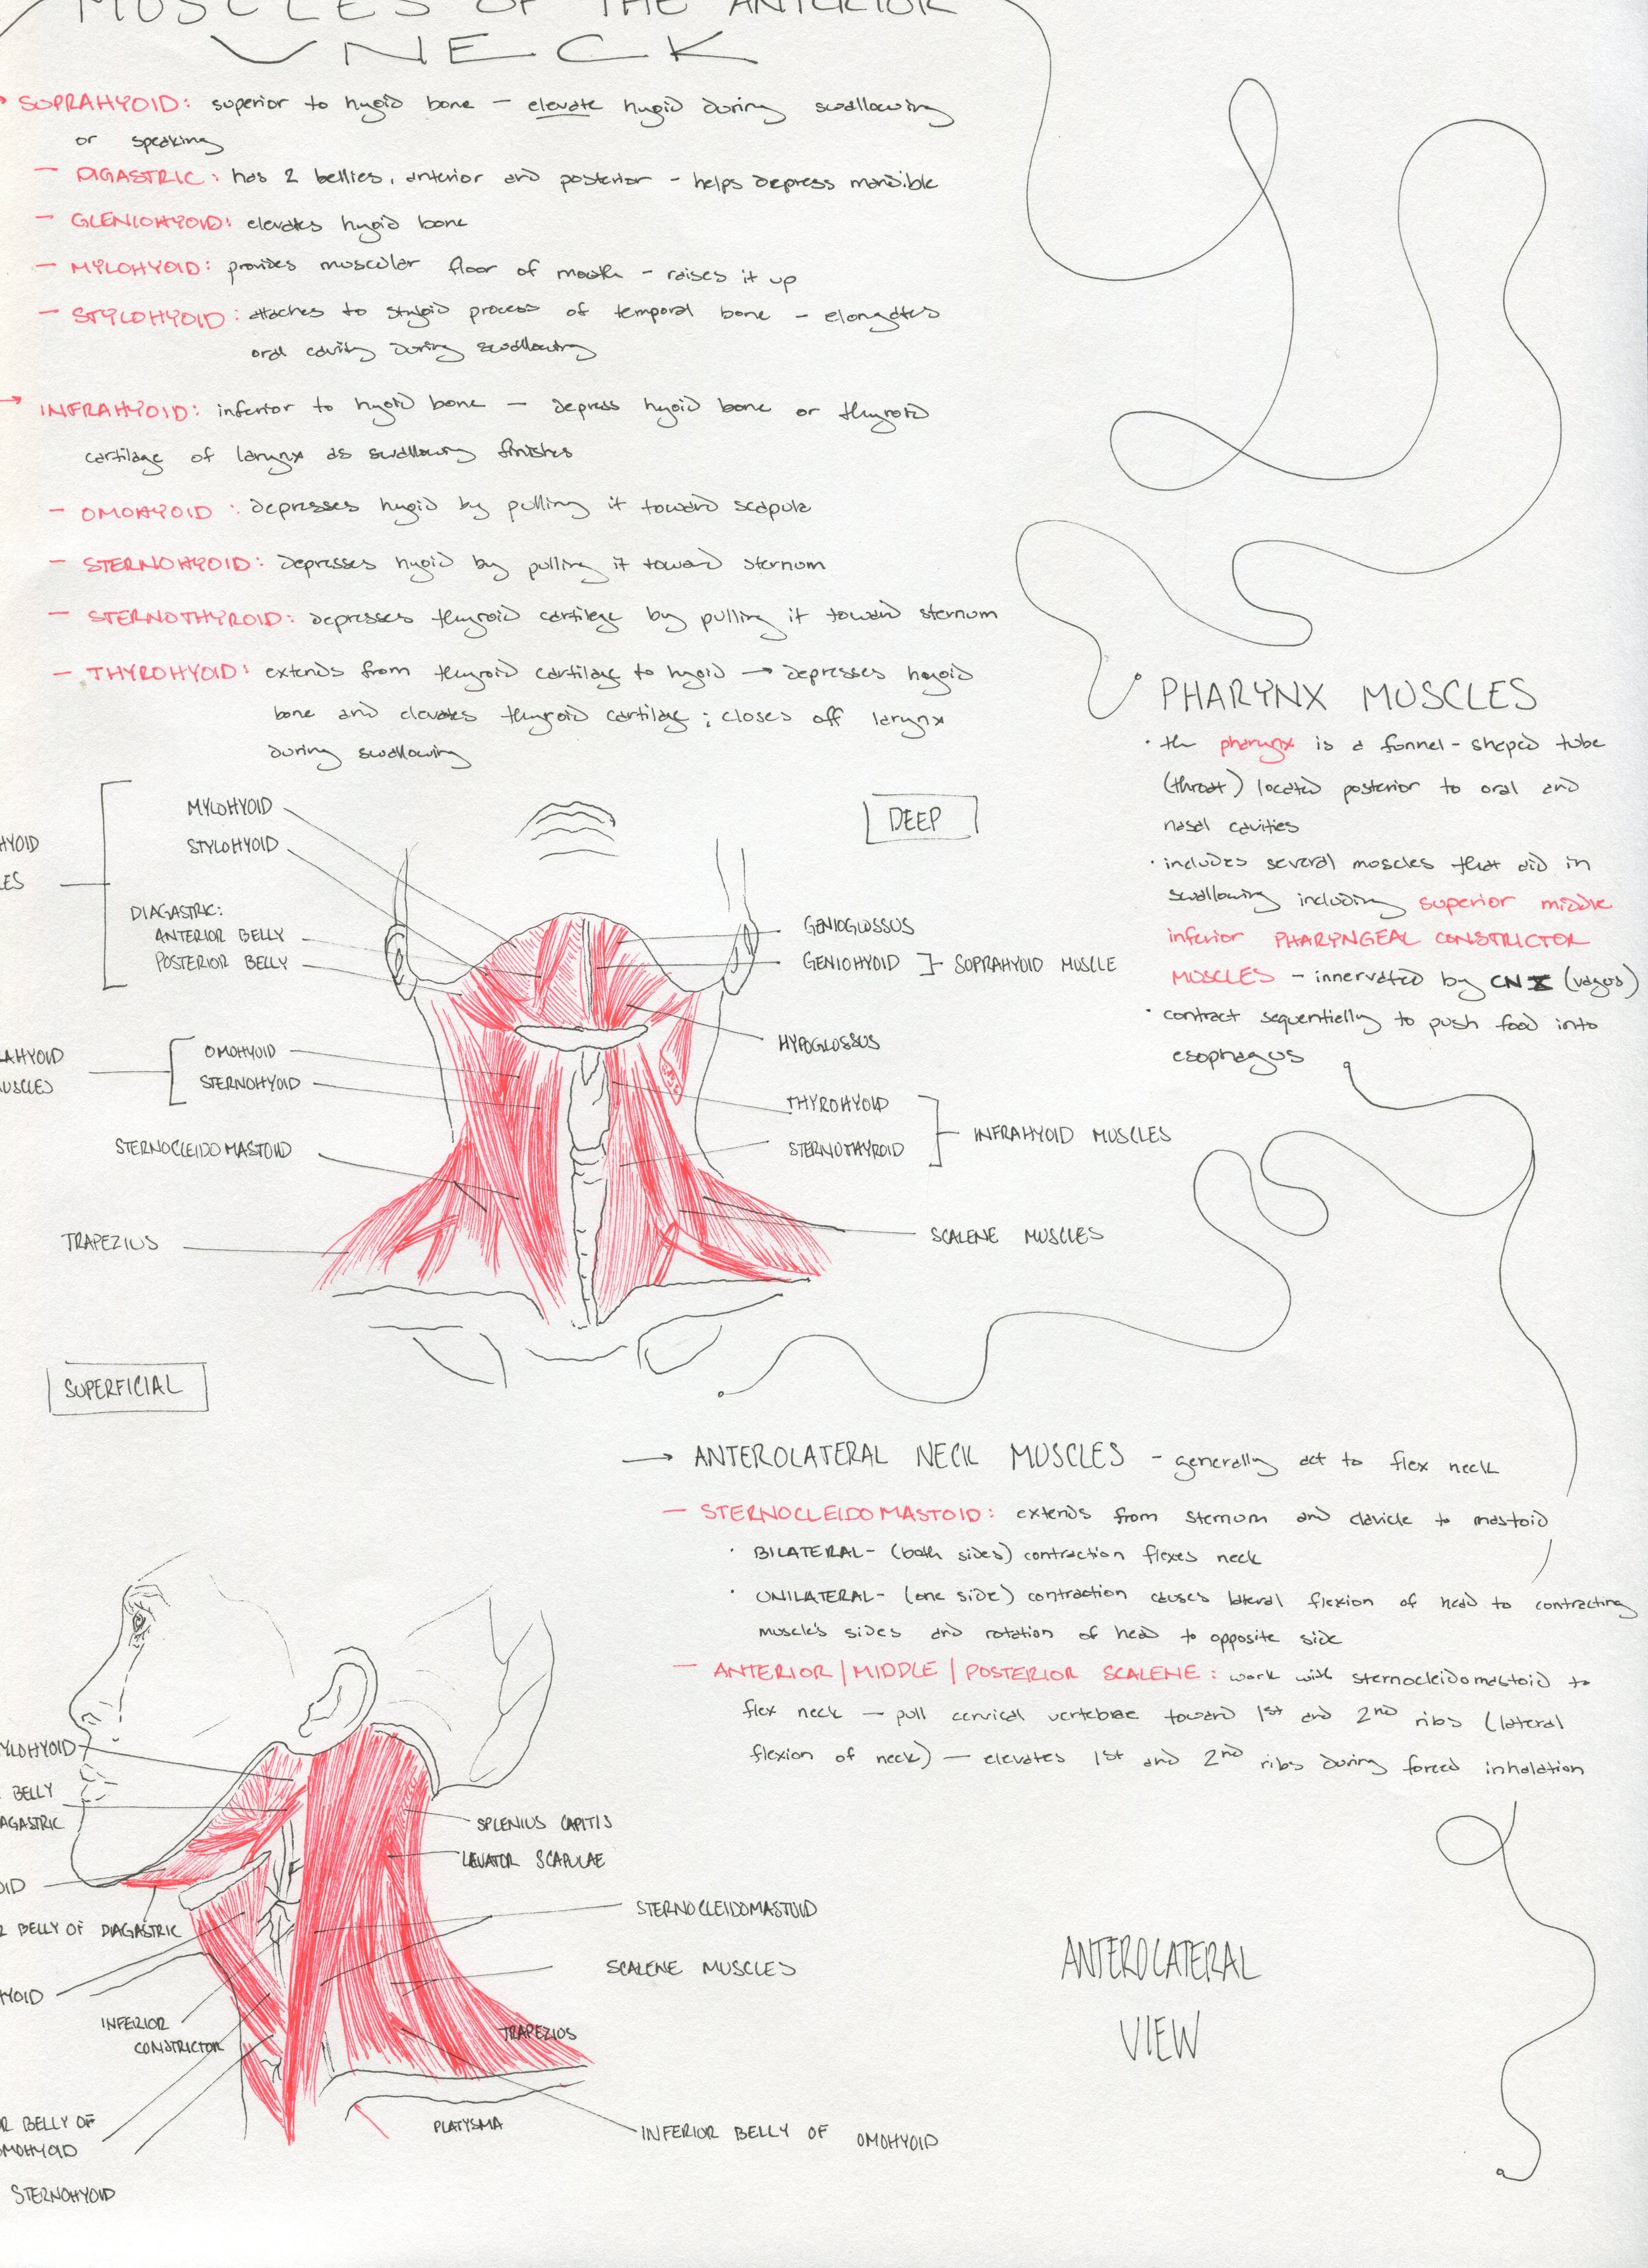 MUSCLES OF THE ANTERIOR
NECK
SUPRAHYOID: superior to hyoid bone – elevate hyoid during swallowing
or speaking
– DIGASTRIC: has 2 bellies, anterior and posterior – helps depress mandible
– GLENIOHYOID: elevates hyoid bone
– MYLOHYOID: provides muscular floor of mouth – raises it up
– STYLOHYOID: attaches to styloid process of temporal bone – elongates
oral cavity during swallowing
→ INFRAHYOID: inferior to hyoid bone – depress hyoid bone or thyroid
cartilage of larynx as swallowing finishes
– OMOHYOID: depresses hyoid by pulling it toward scapula
– STERNOHYOID: depresses hyoid by pulling it toward sternum
– STERNOTHYROID: depresses thyroid cartilage by pulling it toward sternum
– THYROHYOID: extends from thyroid cartilage to hyoid → depresses hoyoid
bone and elevates thyroid cartilage; closes off larynx
during swallowing
PHARYNX MUSCLES
• the pharynx is a funnel-shaped tube
(throat) located posterior to oral and
nasal cavities
• includes several muscles that aid in
swallowing including superior middle
inferior PHARYNGEAL CONSTRICTOR
MUSCLES – innervated by CN X (vagus)
• contract sequentially to push food into
esophagus
DEEP
HYOID
LES
MYLOHYOID
STYLOHYOID
DIAGASTRIC:
ANTERIOR BELLY
POSTERIOR BELLY
GENIOGLOSSUS
GENIOHYOID ]– SUPRAHYOID MUSCLE
HYPOGLOSSUS
RAHYOID
MUSCLES
OMOHYOID
STERNOHYOID
THYROHYOID
STERNOTHYROID
INFRAHYOID MUSCLES
STERNOCLEIDOMASTOID
TRAPEZIUS
SCALENE MUSCLES
SUPERFICIAL
→ ANTEROLATERAL NECK MUSCLES – generally act to flex neck
– STERNOCLEIDOMASTOID: extends from sternum and clavicle to mastoid
• BILATERAL – (both sides) contraction flexes neck
• UNILATERAL – (one side) contraction causes lateral flexion of head to contracting
muscle's sides and rotation of head to opposite side
– ANTERIOR | MIDDLE | POSTERIOR SCALENE: work with sternocleidomastoid to
flex neck – pull cervical vertebrae toward 1st and 2nd ribs (lateral
flexion of neck) – elevates 1st and 2nd ribs during forced inhalation
YLOHYOID
BELLY
IAGASTRIC
OID
R BELLY OF DIAGASTRIC
HYOID
INFERIOR
CONSTRICTOR
OR BELLY OF
OMOHYOID
STERNOHYOID
SPLENIUS CAPITIS
LEVATOR SCAPULAE
STERNOCLEIDOMASTOID
SCALENE MUSCLES
TRAPEZIUS
PLATYSMA
INFERIOR BELLY OF OMOHYOID
ANTEROLATERAL
VIEW